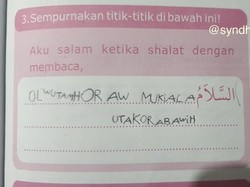 3. Sempurnakan titik-titik di bawah ini!
@syndh
Aku salam ketika shalat dengan
membaca,
OL WUTAMHOR AW MUKIALA اَلسَّلَامُ
UTAKORABAWIH